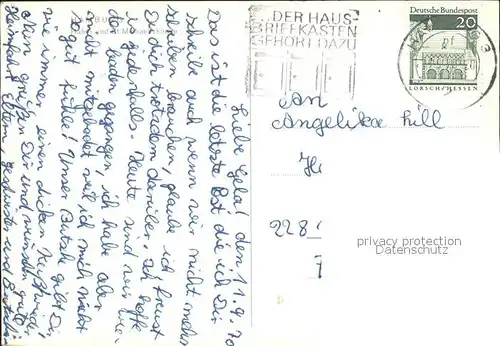 ...DER HAUS-
BRIEFKASTEN
GEHÖRT DAZU
Deutsche Bundespost
20
LORSCH/HESSEN
Liebe Gela! den 11.9.70
Das ist die letzte Post die ich Dir
schreibe auch wenn wir nicht mehr
schreiben brauchen, glaube ich freust
Du dich trotzdem darüber, ich hoffe
es jedenfalls. Heute sind wir
baden gegangen, ich habe aber
nicht mitgebadet weil ich mich nicht
gut fühle! Unser Butzih gibt Dir
wie immer einen dicken
Nun grüßen Dir und wünschen gute
Heimfahrt Eltern, Geschwister und
An
Angelika Lill
228
privacy protection
Datenschutz